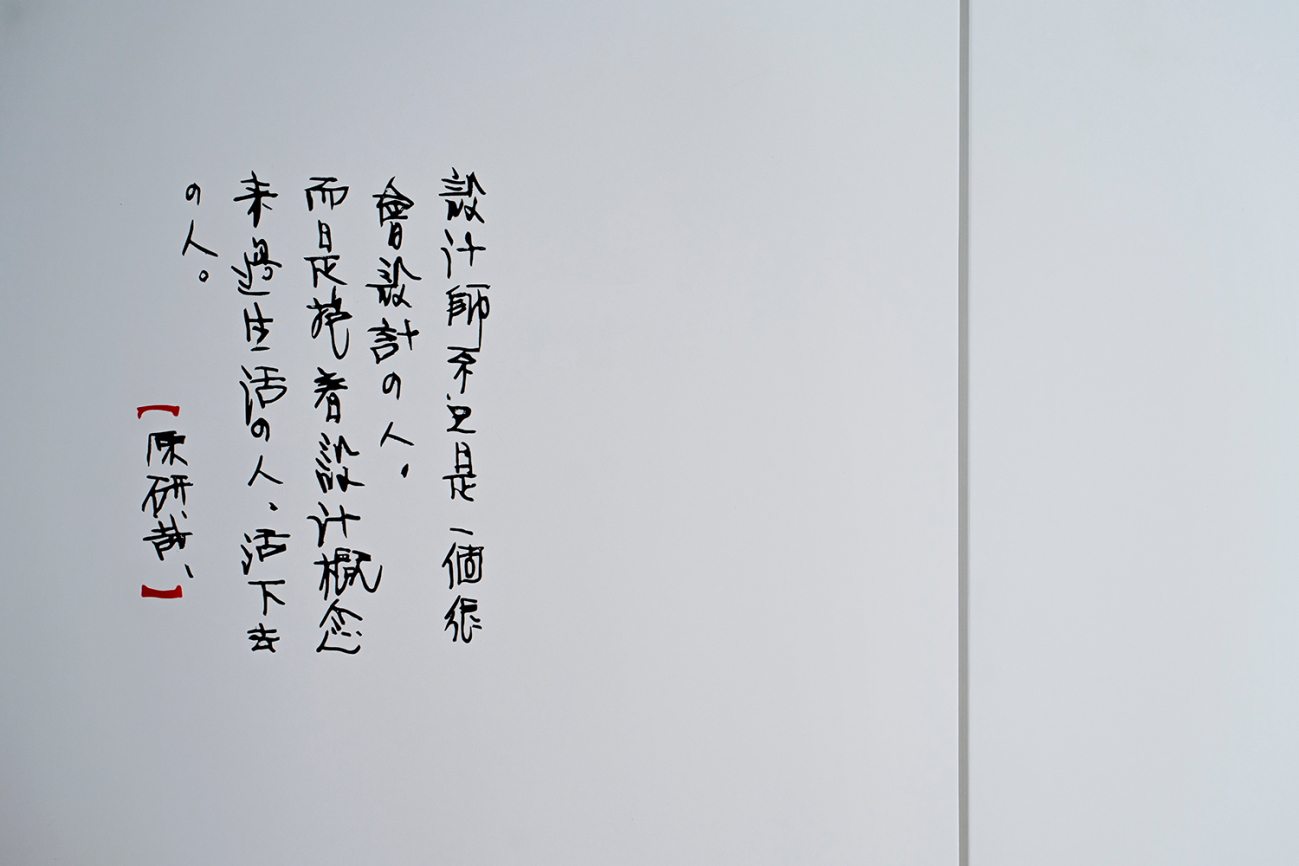 設計師不只是一個很
會設計の人。
而是抱着設計概念
来過生活の人、活下去
の人。
【原研哉、】